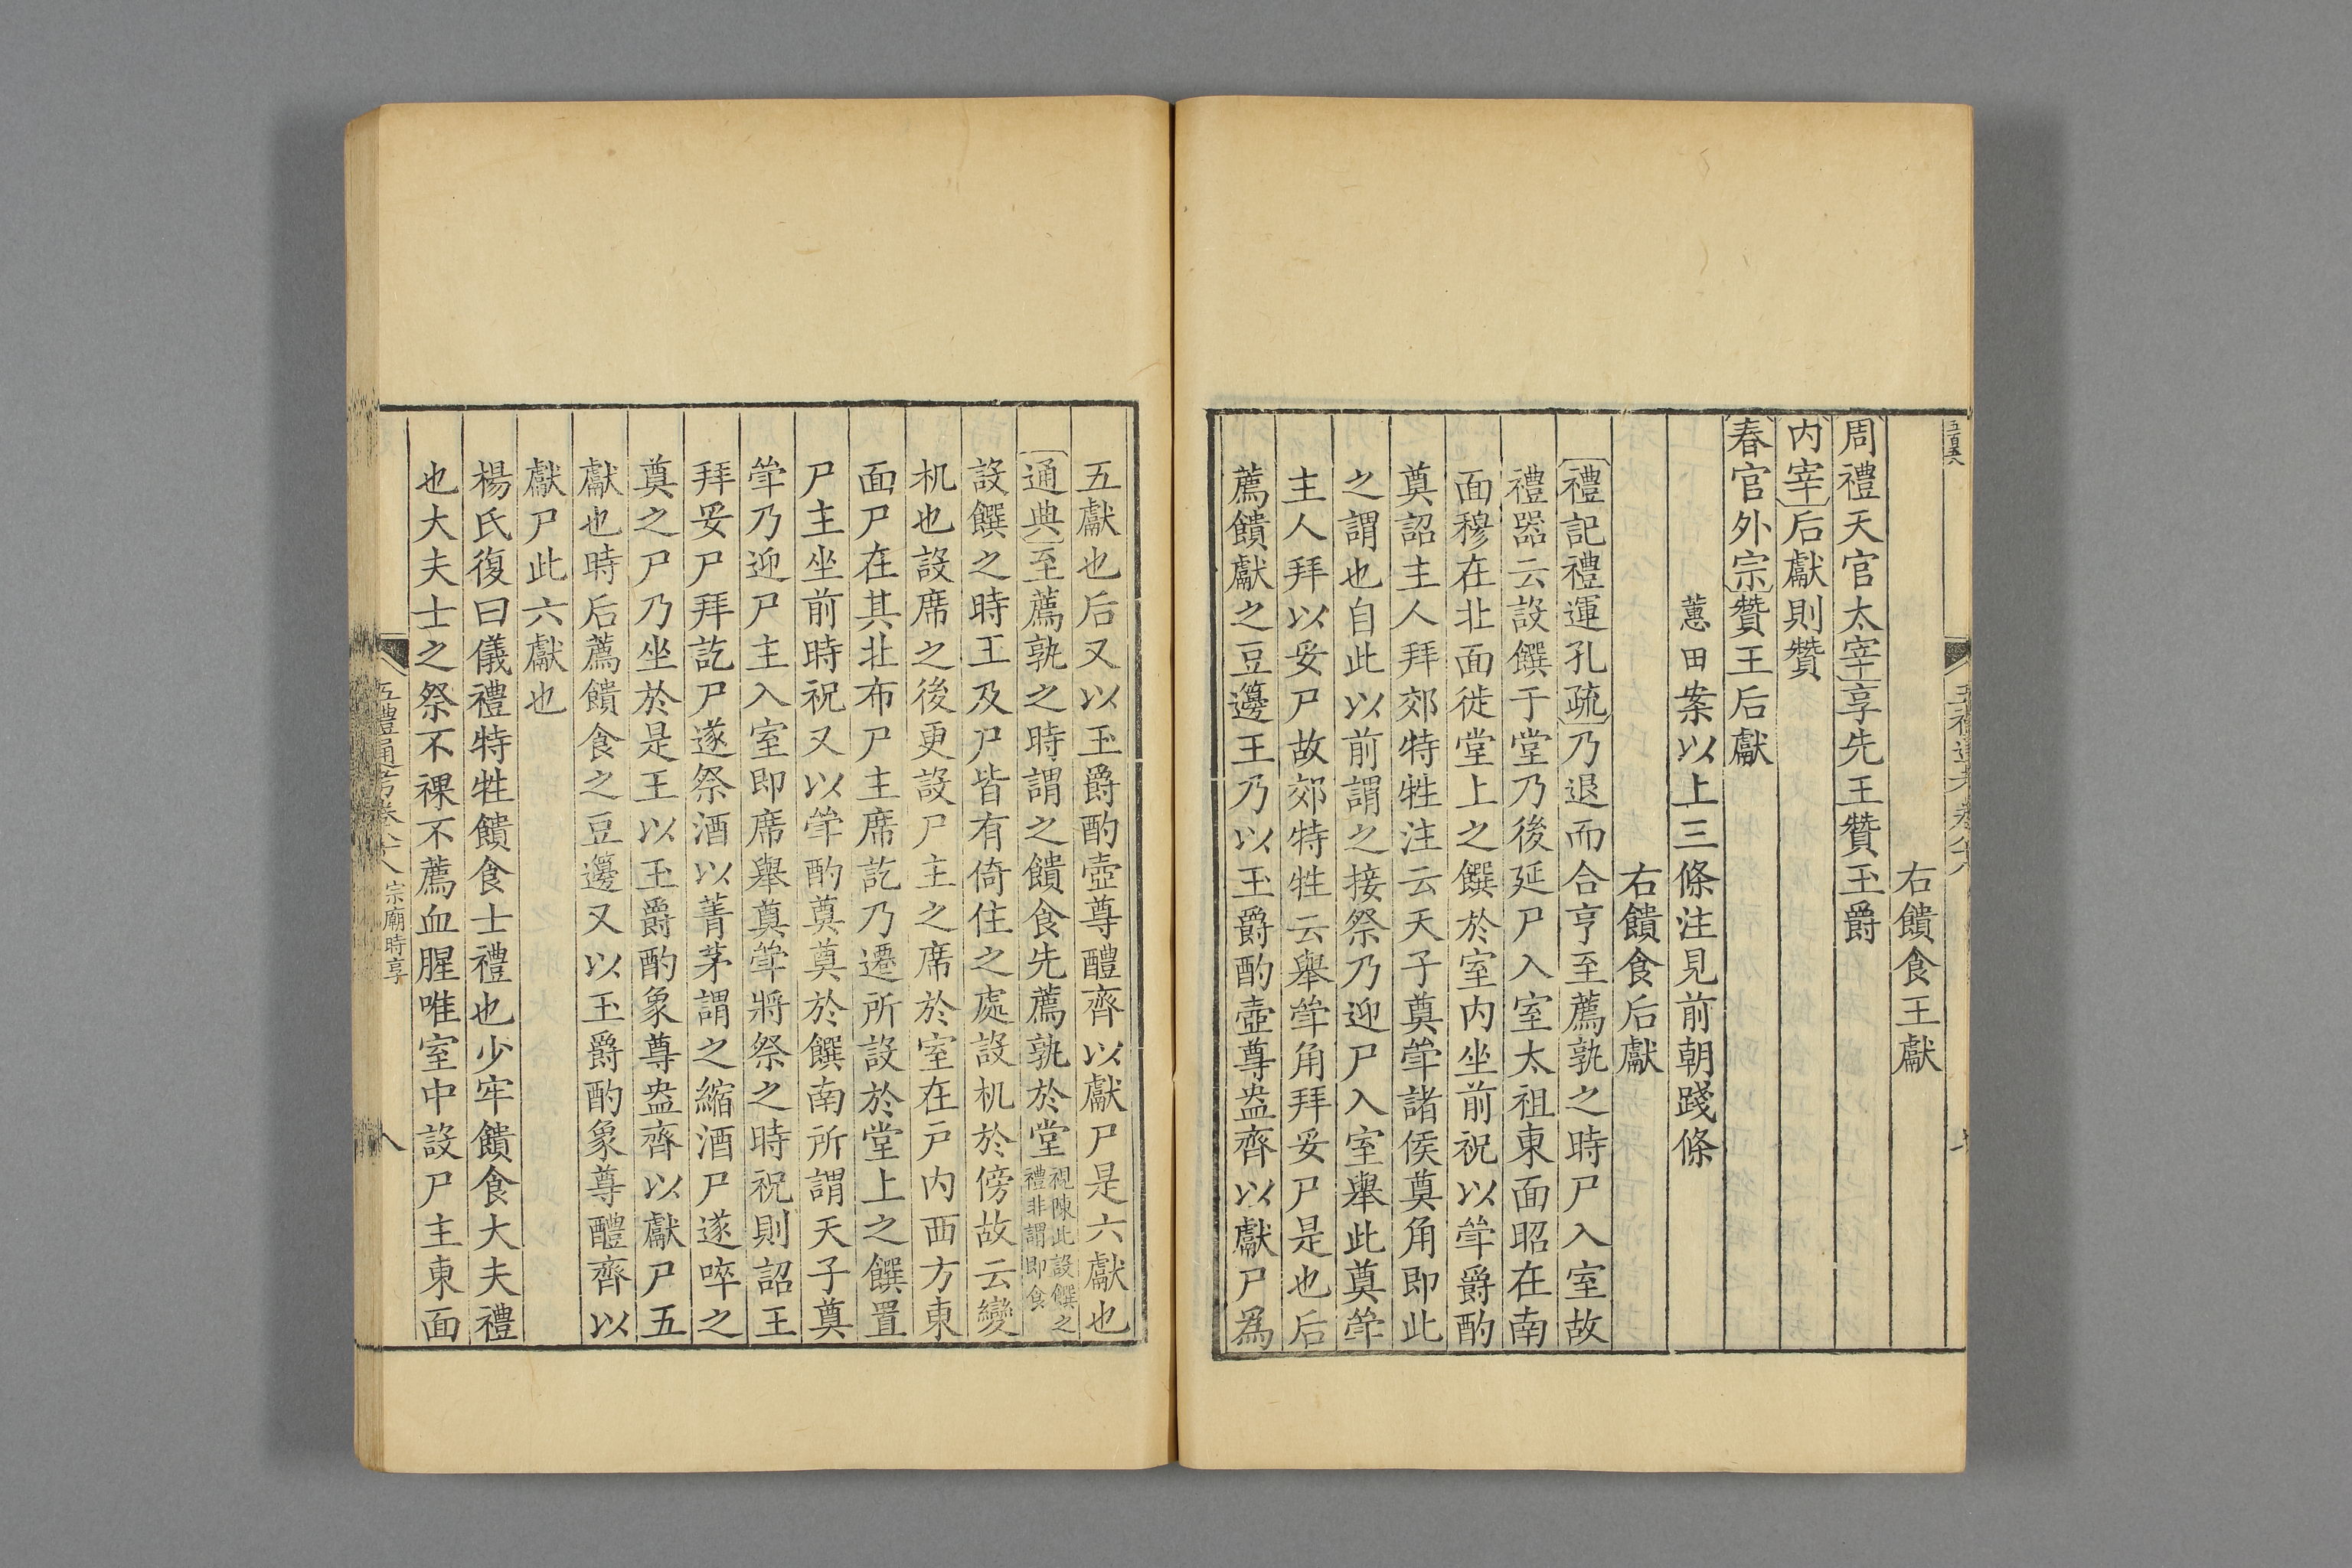 右饋食王獻
周禮天官太宰享先王贊玉爵
内宰后獻則贊
春官外宗贊王后獻
蕙田案以上三條注見前朝踐條
右饋食后獻
禮記禮運孔疏乃退而合亨至薦孰之時尸入室故
禮器云設饌于堂乃後延尸入室太祖東面昭在南
面穆在北面徙堂上之饌於室内坐前祝以斝爵酌
奠詔主人拜郊特牲注云天子奠斝諸侯奠角即此
之謂也自此以前謂之接祭乃迎尸入室舉此奠斝
主人拜以妥尸故郊特牲云舉斝角拜妥尸是也后
薦饋獻之豆籩王乃以玉爵酌壺尊盎齊以獻尸爲
五獻也后又以玉爵酌壺尊醴齊以獻尸是六獻也
通典至薦孰之時謂之饋食先薦孰於堂視陳此設饌之禮非謂即食
設饌之時王及尸皆有倚住之處設机於傍故云變
机也設席之後更設尸主之席於室在戸内西方東
面尸在其北布尸主席訖乃遷所設於堂上之饌置
尸主坐前時祝又以斝酌奠奠於饌南所謂天子奠
斝乃迎尸主入室即席舉奠斝將祭之時祝則詔王
拜妥尸拜訖尸遂祭酒以菁茅謂之縮酒尸遂啐之
奠之尸乃坐於是王以玉爵酌象尊盎齊以獻尸五
獻也時后薦饋食之豆籩又以玉爵酌象尊醴齊以
獻尸此六獻也
楊氏復曰儀禮特牲饋食士禮也少牢饋食大夫禮
也大夫士之祭不祼不薦血腥唯室中設尸主東面
五禮通考卷八十八 宗廟時享
八